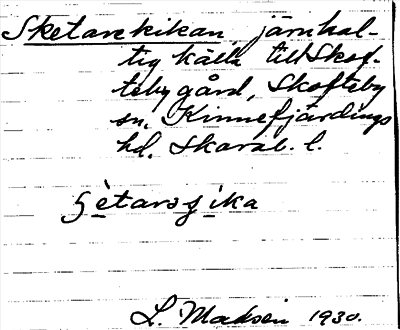 Sketarekikan, järnhal-
tig källa till Skof-
teby gård, Skofteby
sn, Kinnefjärdings
hd. Skarab. l.
L. Madsén 1930.